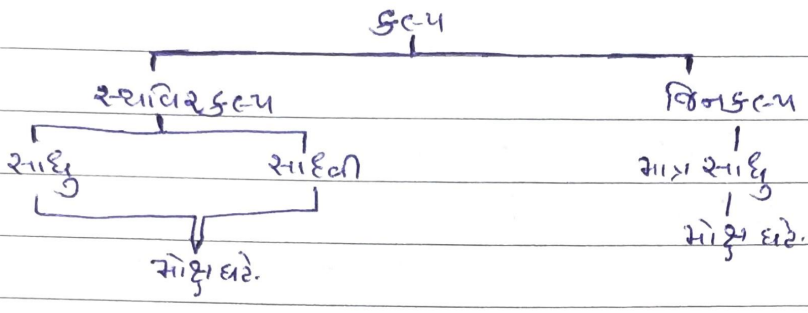 કલ્પ
સ્થવિરકલ્પ જિનકલ્પ
સાધુ સાધ્વી માત્ર સાધુ
મોક્ષ ઘટે.
મોક્ષ ઘટે.